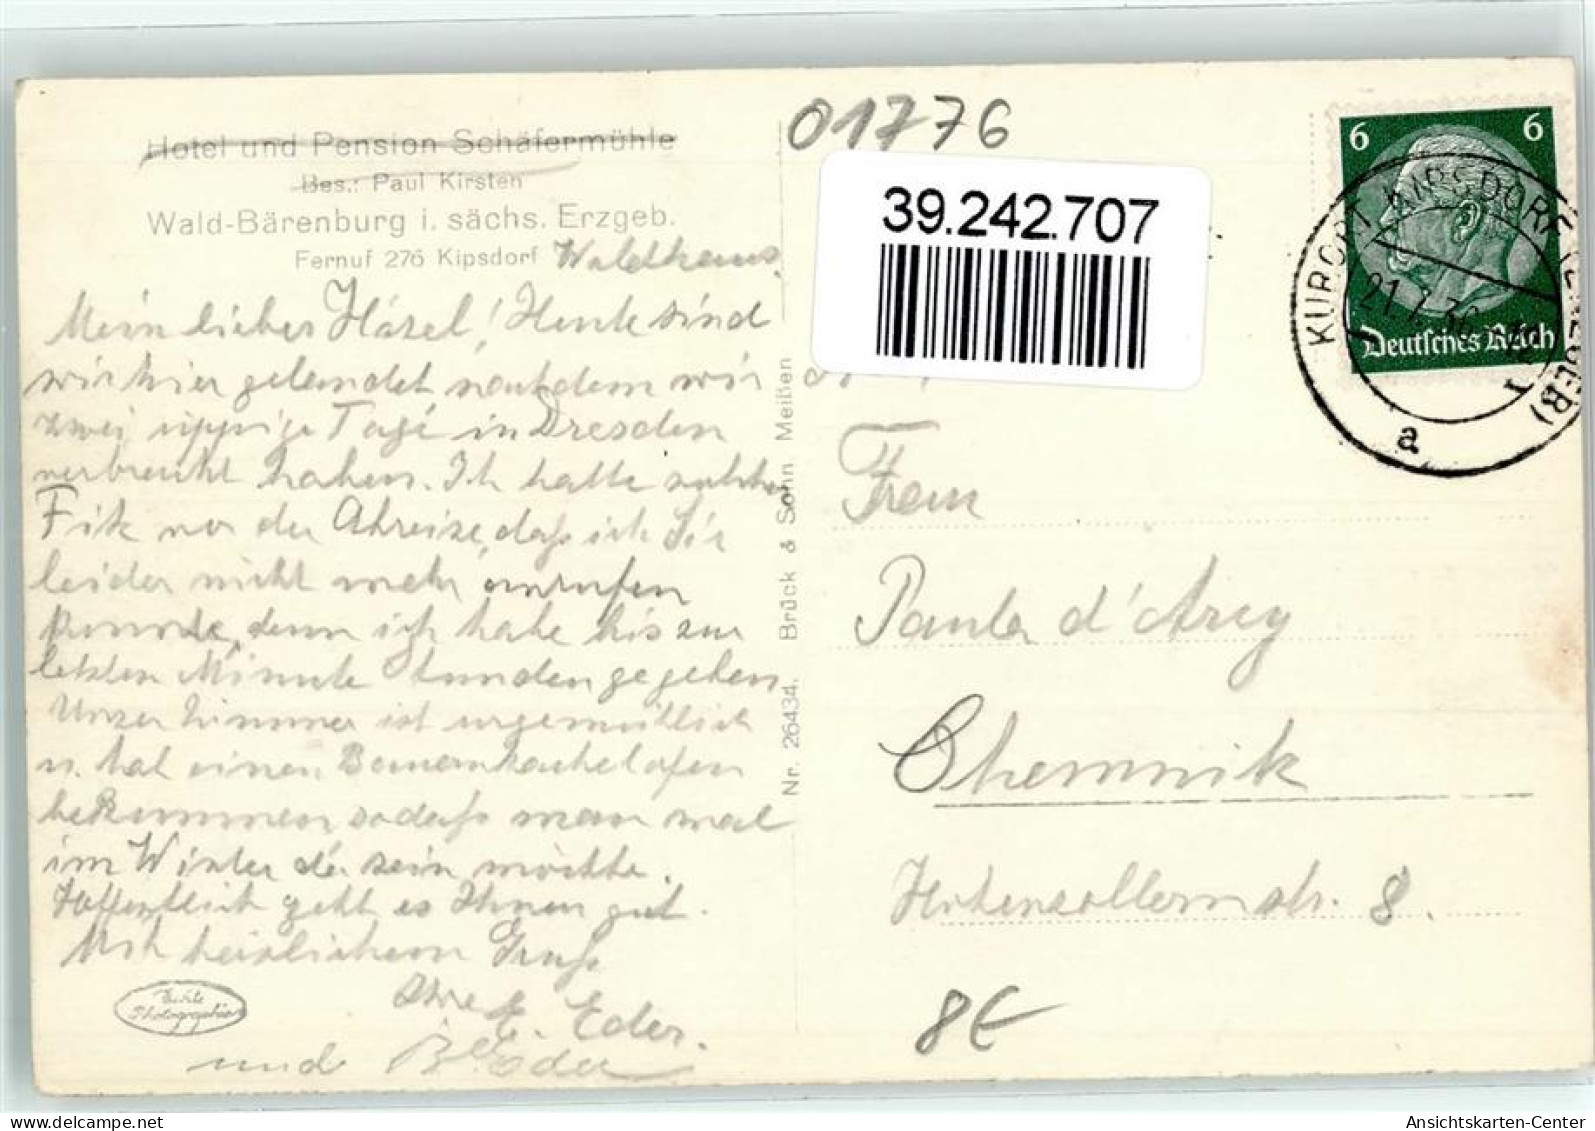 01776
Hotel und Pension Schäfermühle
Bes.: Paul Kirsten
Wald-Bärenburg i. sächs. Erzgeb.
Fernuf 276 Kipsdorf Waldhaus.
Mein lieber Häsel! Heute sind
wir hier gelandet nachdem wir
zwei üppige Tage in Dresden
verbracht haben. Ich hatte solchen
vor der Abreise, daß ich Sie
leider nicht mehr anrufen
konnte, denn ich habe bis zur
letzten Minute Stunden gegeben
Unser Zimmer ist urgemütlich
u. hat einen Bauernkachelofen
bekommen, sodaß man mal
im Winter da sein möchte.
Hoffentlich geht es Ihnen gut.
Mit herzlichem Gruß
Ihre E. Eder.
und B. Eder
Echte
Photographie
Nr. 26434. Brück & Sohn Meißen
39.242.707
6 6
Deutsches Reich
KURORT KIPSDORF (ERZGEB)
a
Frau
Paula d'Arcy
Chemnitz
Hohenzollernstr. 8.
8€
Ansichtskarten-Center